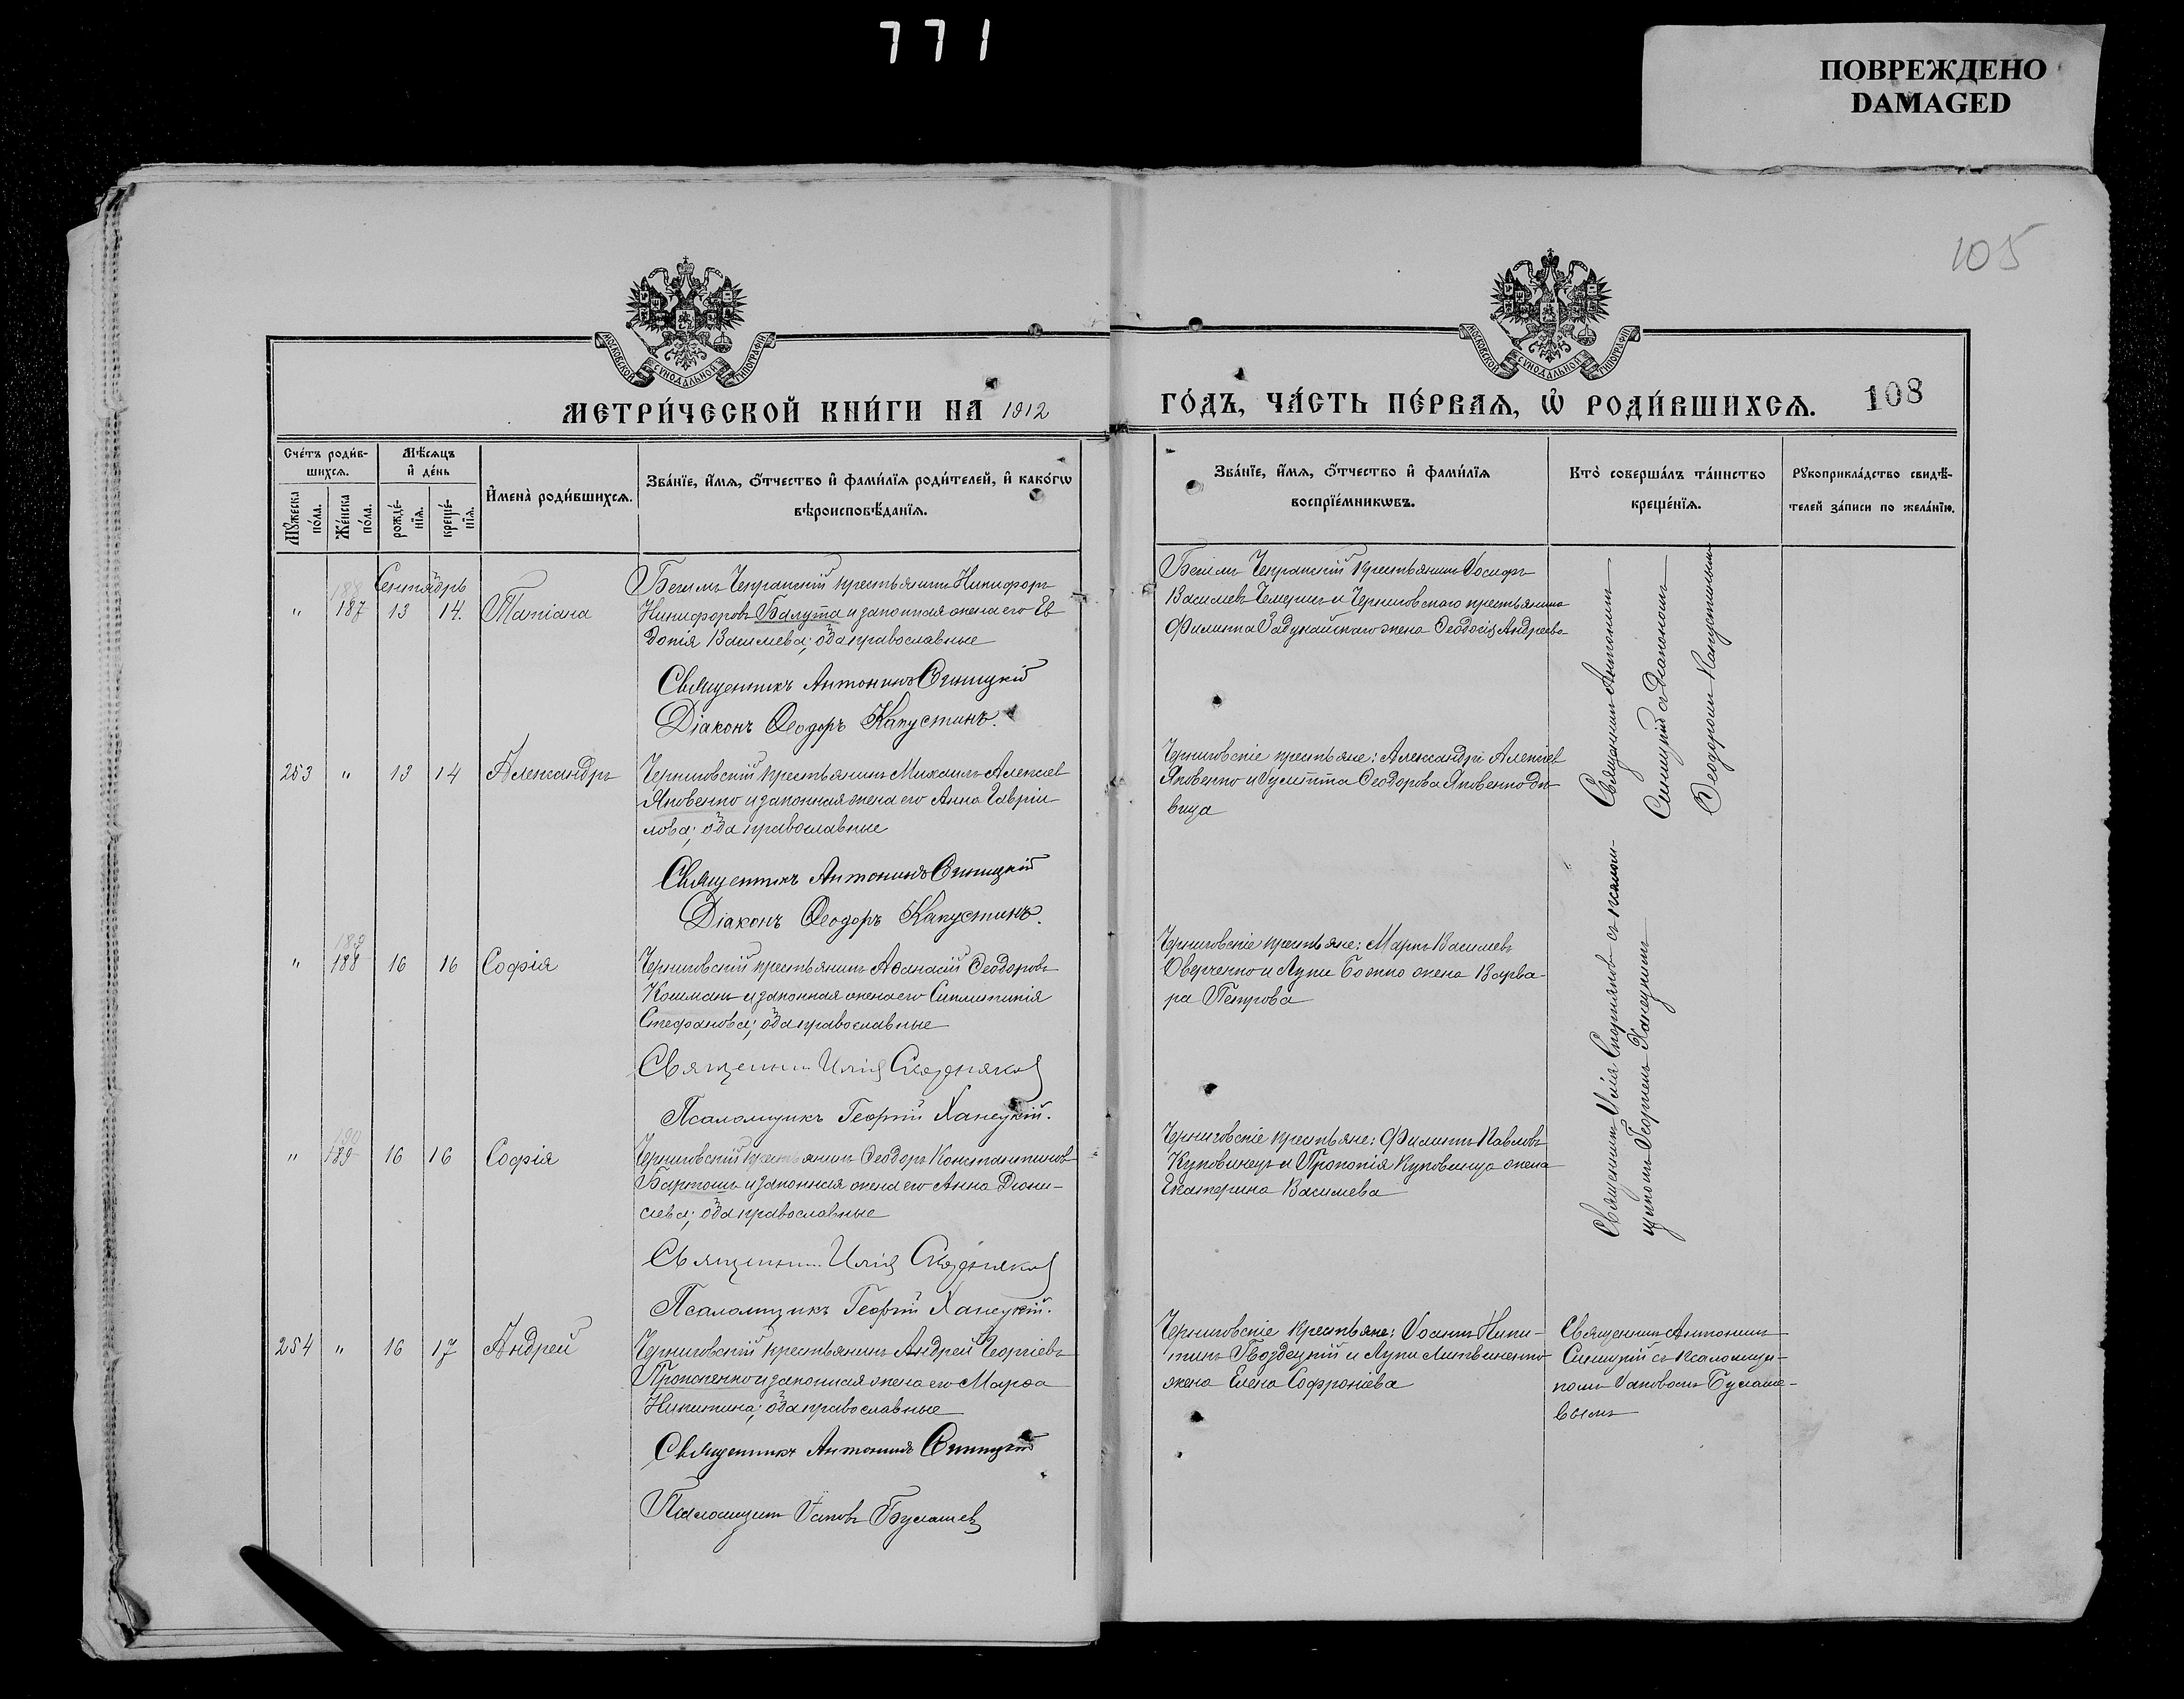 771
ПОВРЕЖДЕНО
DAMAGED
105
МОСКОВСКОЙ СѴНОДАЛЬНОЙ ТИПОГРАФІИ
МОСКОВСКОЙ СѴНОДАЛЬНОЙ ТИПОГРАФІИ
МЕТРИ́ЧЕСКОЙ КНИ́ГИ НА 1912
ГО́ДЪ, ЧА́СТЬ ПЕ́РВАѦ, Ѡ РОДИ́ВШИХСѦ.
108
Сче́тъ роди́в-
шихсѧ.
Мꙋ́жеска
по́ла.
Же́нска
по́ла.
Мѣ́сѧцъ
и҆ де́нь
рожде́-
нїѧ.
креще́-
нїѧ.
И҆мена̀ роди́вшихсѧ.
Зва́нїе, и҆́мѧ, ѻ҆́тчество и҆ фами́лїѧ роди́телей, и҆ како́гѡ
вѣроисповѣ́данїѧ.
Зва́нїе, и҆́мѧ, ѻ҆́тчество и҆ фами́лїѧ
воспрїе́мникѡвъ.
Кто̀ соверша́лъ та́инство
креще́нїѧ.
Рꙋкоприкла́дство свидѣ́-
телей за́писи по жела́нїю.
Сентябрь
188
" 187 13 14. Татіана
крестьянинъ Никифоръ
Никифоровъ Балута и законная жена его Ев
докія Васильева; оба православные
Священникъ Антонинъ Синицкій
Діаконъ Ѳеодоръ Капустинъ.
крестьянинъ Іосифъ
Васильевъ Чемерисъ и Черниговскаго крестьянина
Филиппа Задунайскаго жена Ѳеодосія Андреева
Священникъ Антонинъ
Синицкій съ Діакономъ
Ѳеодоромъ Капустинымъ
253 " 13 14 Александръ
Черниговскій крестьянинъ Михаилъ Алексіев
Яковенко и законная жена его Анна Гавріи-
лова; оба православные
Священникъ Антонинъ Синицкій
Діаконъ Ѳеодоръ Капустинъ.
Черниговскіе крестьяне: Александръ Алексіев
Яковенко и Іулитта Ѳеодорова Яковенко дѣ-
вица
189
" 188 16 16 Софія
Черниговскій крестьянинъ Аѳанасій Ѳеодоровъ
Кошманъ и законная жена его Синклитикія
Стефановна; оба православные
Священникъ Илія Скорняковъ
Псаломщикъ Георгій Ханецкій.
Черниговскіе крестьяне: Маркъ Васильевъ
Оверченко и Луки Божко жена Варва-
ра Петрова
Священникъ Илія Скорняковъ съ псалом-
щикомъ Георгіемъ Ханецкимъ
190
" 189 16 16 Софія
Черниговскій крестьянинъ Ѳеодоръ Константиновъ
Бартошъ и законная жена его Анна Діони-
сіева; оба православные
Священникъ Илія Скорняковъ
Псаломщикъ Георгій Ханецкій.
Черниговскіе крестьяне: Филиппъ Павловъ
Куповинецъ и Прокопія Куповинца жена
Екатерина Васильева
254 " 16 17 Андрей
Черниговскій крестьянинъ Андрей Георгіевъ
Прокопенко и законная жена его Марѳа
Никитина; оба православные
Священникъ Антонинъ Синицкій
Псаломщикъ Іаковъ Булашевъ
Черниговскіе крестьяне: Іоаннъ Ники-
тинъ Гвоздецкій и Луки Литвиненко
жена Елена Софроніева
Священникъ Антонинъ
Синицкій съ псаломщи-
комъ Іаковомъ Булаше-
вымъ